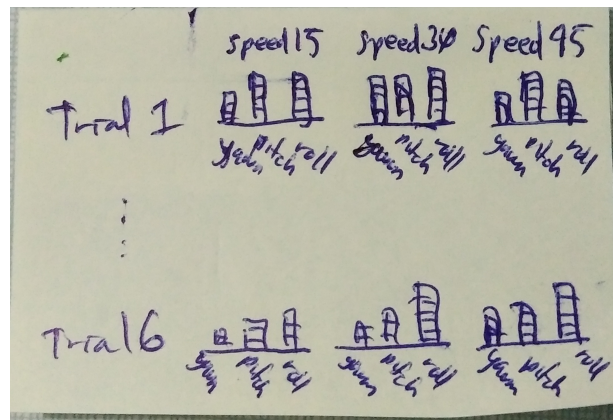 speed15 speed30 Speed45
Trial 1
yawn pitch roll yawn pitch roll yawn pitch roll
Trial 6
yawn pitch roll yawn pitch roll yawn pitch roll